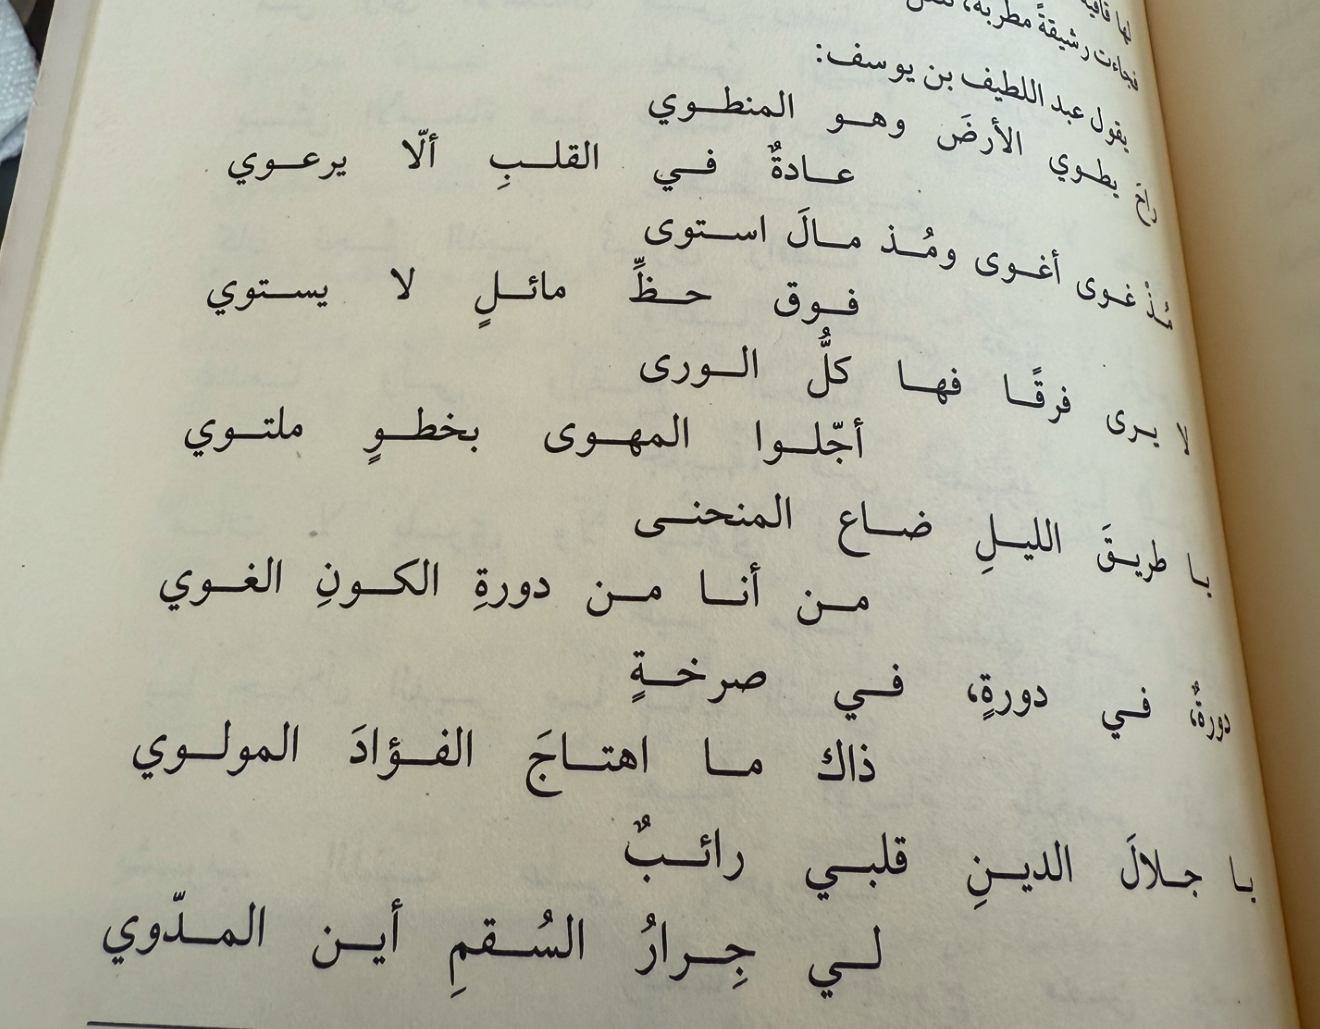 لها قافية
فجاءت رشيقةً مطربة،
يقول عبد اللطيف بن يوسف:
راح يطوي الأرضَ وهو المنطوي
عادةٌ في القلبِ ألّا يرعوي
مُذْ غوى أغوى ومُذ مالَ استوى
فوق حظٍّ مائلٍ لا يستوي
لا يرى فرقًا فها كلُّ الورى
أجّلوا المهوى بخطوٍ ملتوي
يا طريقَ الليلِ ضاع المنحنى
من أنا من دورةِ الكونِ الغوي
دورةٌ، في دورةٍ، في صرخةٍ
ذاك ما اهتاجَ الفؤادَ المولوي
يا جلالَ الدينِ قلبي رائبٌ
لي جِرارُ السُقمِ أين المدّوي